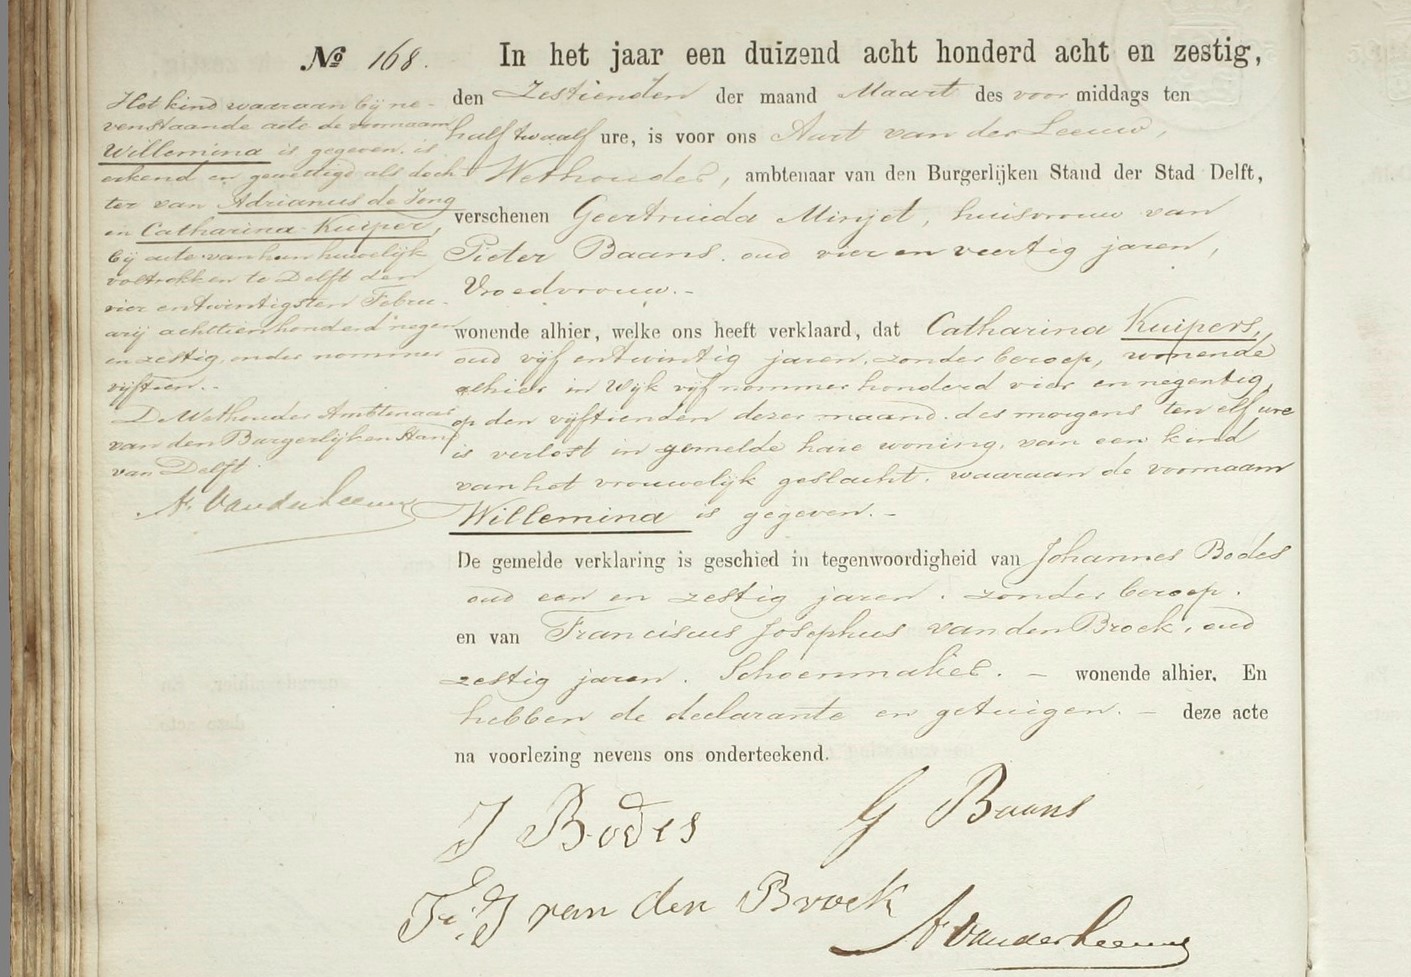 No 168.
Het kind waaraan bij ne-
venstaande acte de voornaam
Willemina is gegeven, is
erkend en gewettigd als doch-
ter van Adrianus de Jong
en Catharina Kuiper,
bij acte van hun huwelijk
voltrokken te Delft den
vier en twintigsten Febru-
arij achttien honderd negen
en zestig, onder nommer
vijftien.-
De Wethouder Ambtenaar
van den Burgerlijken Stand
van Delft
A. van der Leeuw
In het jaar een duizend acht honderd acht en zestig,
den Zestienden der maand Maart des voormiddags ten
half twaalf ure, is voor ons Aart van der Leeuw,
Wethouder, ambtenaar van den Burgerlijken Stand der Stad Delft,
verschenen Geertruida Minjet, huisvrouw van
Pieter Baans, oud vier en veertig jaren,
Vroedvrouw.-
wonende alhier, welke ons heeft verklaard, dat Catharina Kuipers,
oud vijf en twintig jaren, zonder beroep, wonende
alhier in Wijk vijf nommer honderd vier en negentig,
op den vijftienden dezer maand des morgens ten elf ure
is verlost in gemelde hare woning, van een kind
van het vrouwelijk geslacht, waaraan de voornaam
Willemina is gegeven.-
De gemelde verklaring is geschied in tegenwoordigheid van Johannes Bodes
oud een en zestig jaren, zonder beroep.
en van Franciscus Josephus van den Broek, oud
zestig jaren, Schoenmaker. - wonende alhier. En
hebben de declarante en getuigen. - deze acte
na voorlezing nevens ons onderteekend.
J Bodes G Baans
Fr. J van den Broek A van der Leeuw